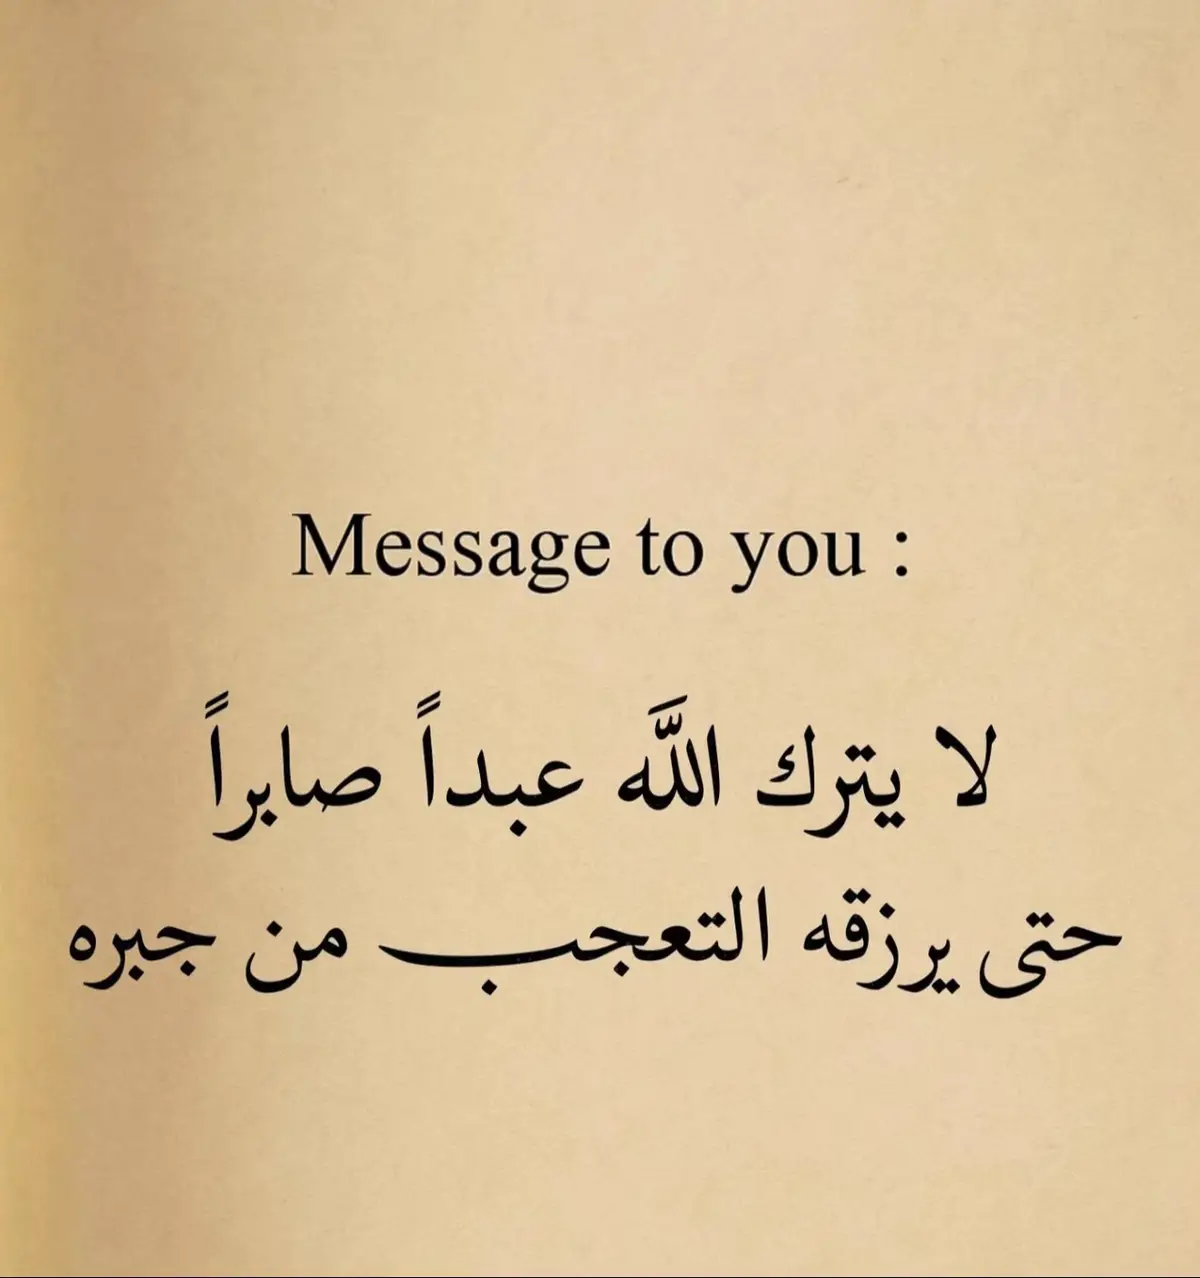 Message to you :
لا يترك اللَّه عبداً صابراً
حتى يرزقه التعجب من جبره